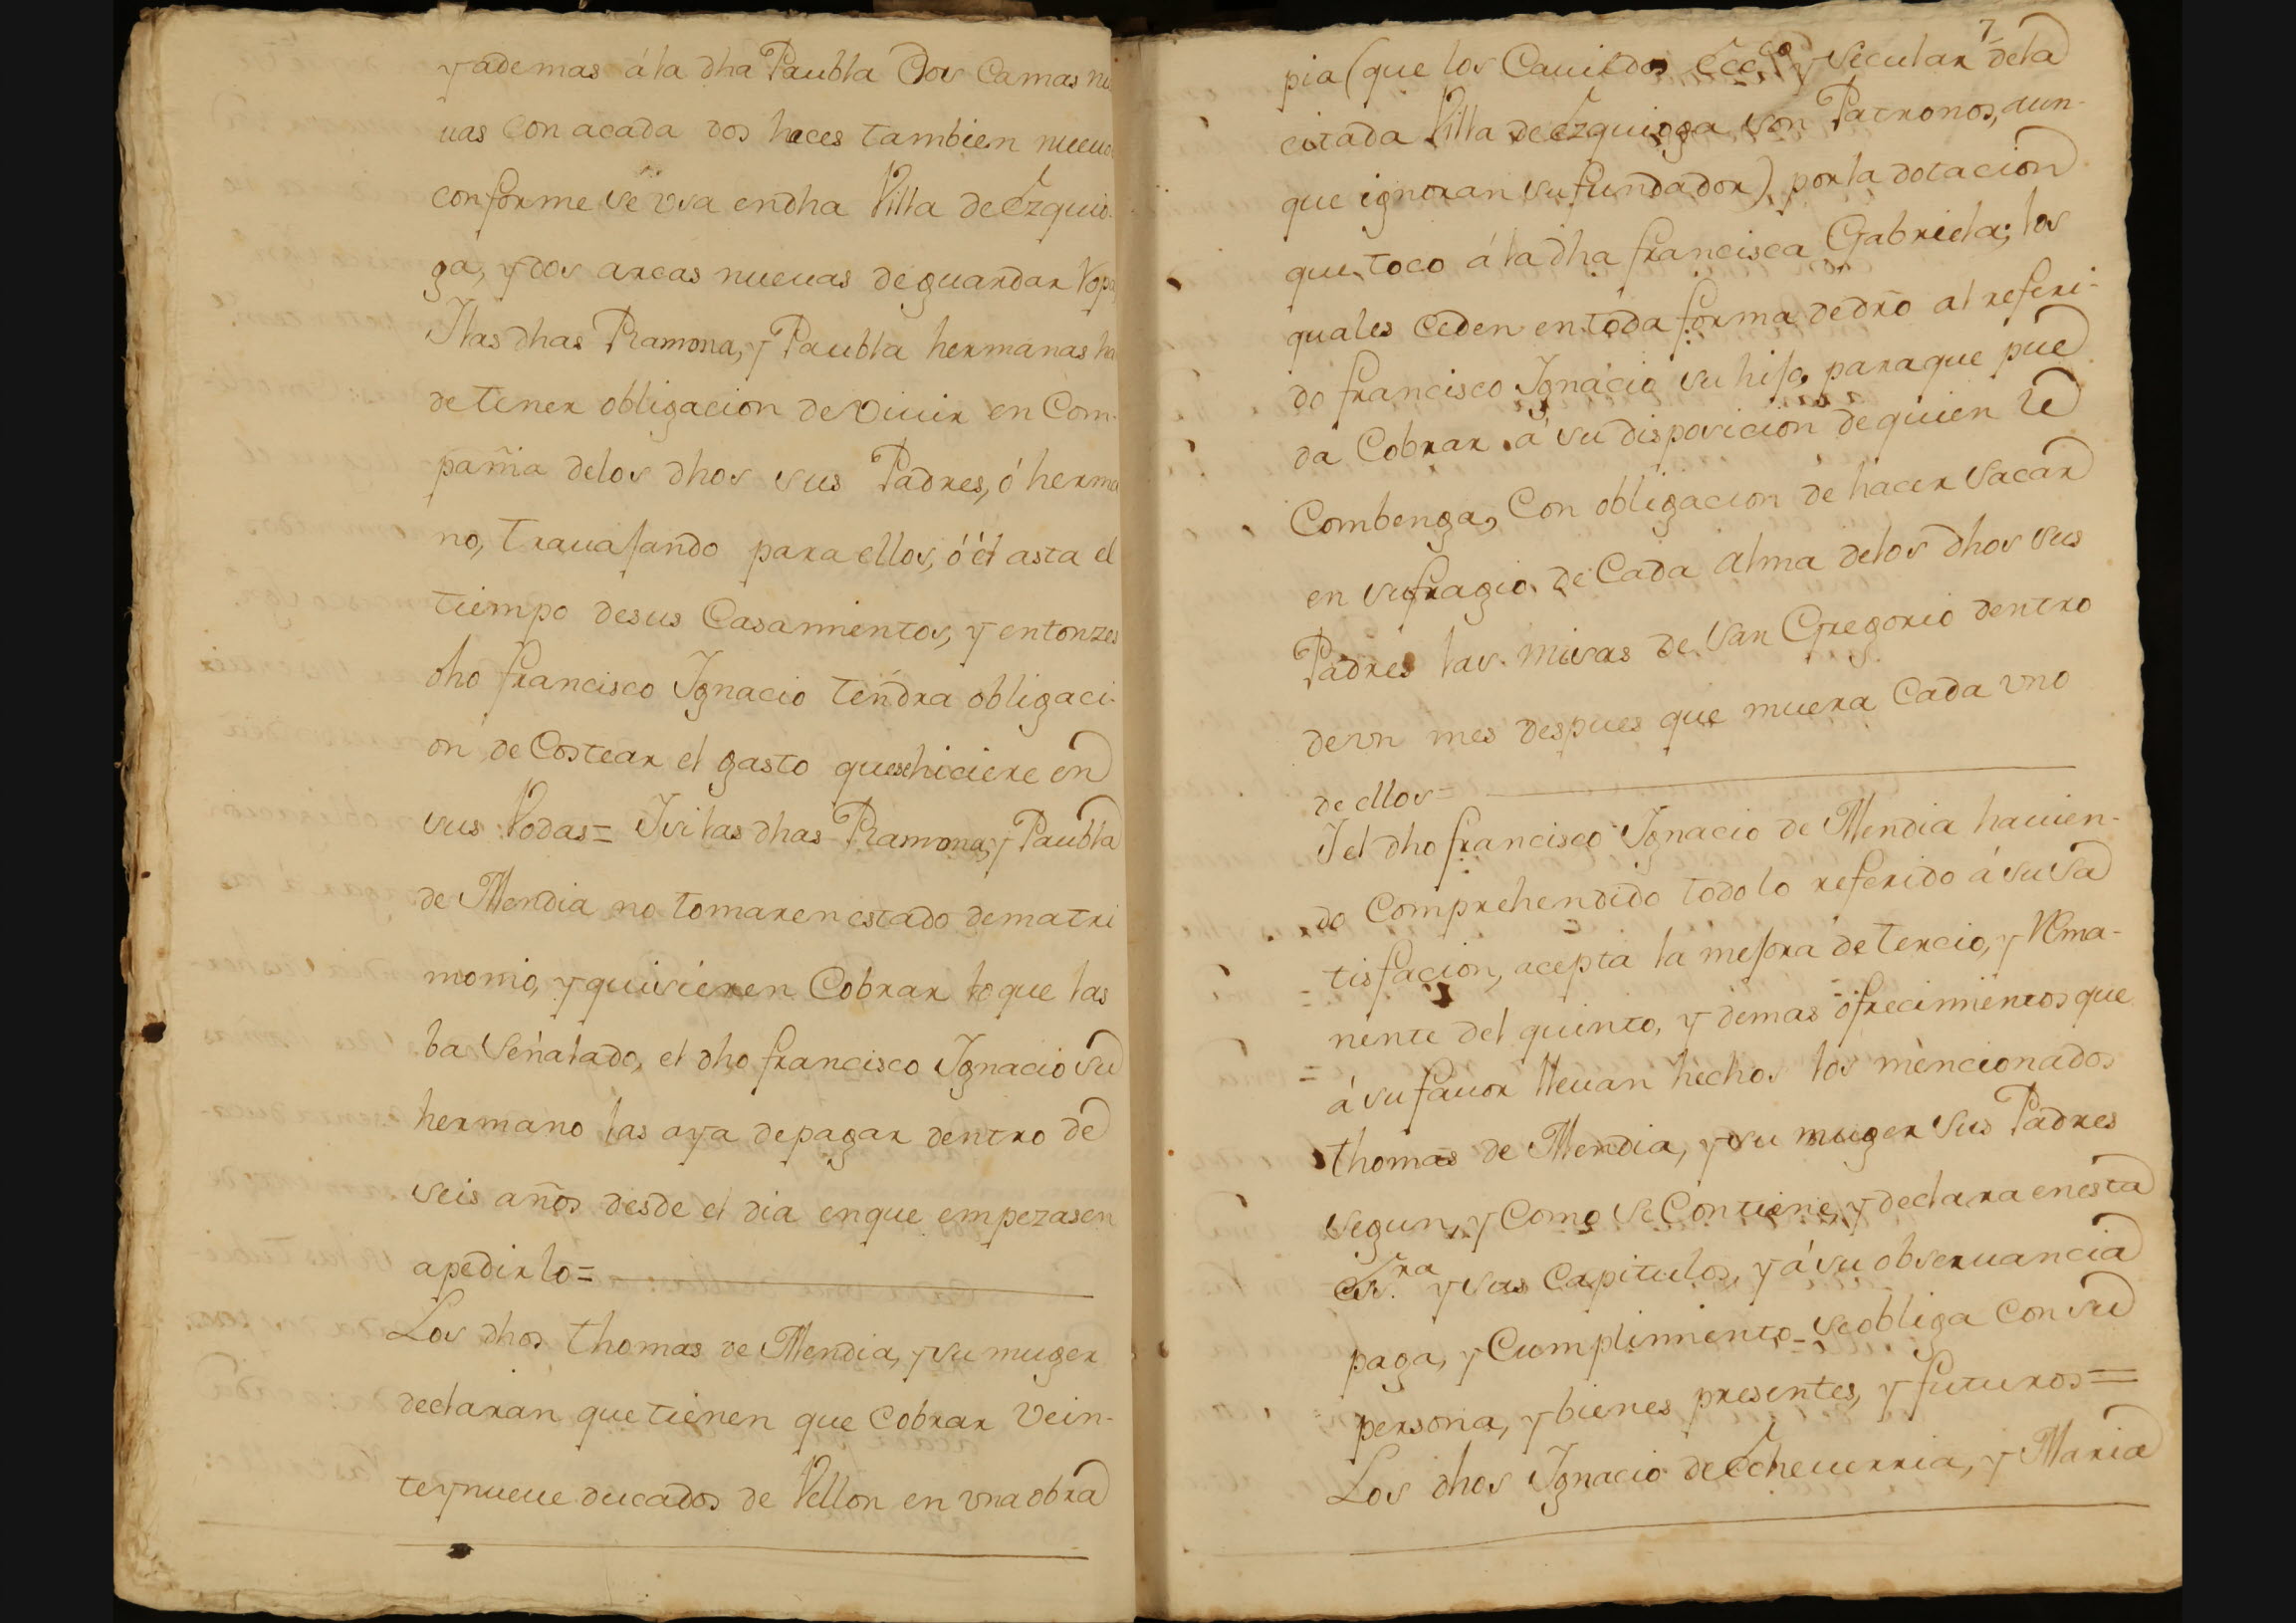 y ademas á la dha Paubla dos Camas nu
uas con acada dos haces tambien nueuos
conforme se vsa en dha Villa de Ezquio
ga, y dos arcas nueuas de guardar Ropa
I las dhas Ramona, y Paubla hermanas ha
de tener obligacion de viuir en Com-
pañia delos dhos sus Padres, ó herma
no, trauajando para ellos, ó él asta el
tiempo desus Casamientos, y entonzes
dho francisco Ignacio tendra obligaci-
on de Costear el gasto que se hiciere en
sus Vodas = I si las dhas Ramona, y Paubla
de Mendia no tomaren estado de matri
monio, y quisieren Cobrar lo que las
ba señalado, el dho francisco Ignacio su
hermano las aya de pagar dentro de
seis años desde el dia en que empezasen
apedirlo =
Los dhos thomas de Mendia, y su muger
declaran que tienen que Cobrar vein-
te y nueue ducados de Vellon en vna obra
7
pia (que los Cauildos Ecc.co y Secular de la
citada Villa de Ezquioga son Patronos, aun-
que ignoran su fundador) por la dotacion
que toco á la dha francisca Gabriela; los
quales Ceden en toda forma de dro al referi-
do francisco Ignacio su hijo, para que pue
da Cobrar á su disposicion de quien le
Combenga, Con obligacion de hacer sacar
en sufragio de Cada alma delos dhos sus
Padres las misas de San Gregorio dentro
de vn mes despues que muera Cada vno
de ellos =
I el dho francisco Ignacio de Mendia hauien-
do Comprehendido todo lo referido á su sa
tisfacion, acepta la mejora de tercio, y Rema-
nente del quinto, y demas ofrecimientos que
á su fauor lleuan hechos los mencionados
thomas de Mendia, y su muger sus Padres
segun, y Como se Contiene, y declara en esta
esr.ra y sus Capitulos, y á su obseruancia
paga, y Cumplimiento se obliga con su
persona, y bienes presentes, y futuros =
Los dhos Ignacio de Echeuerria, y Maria